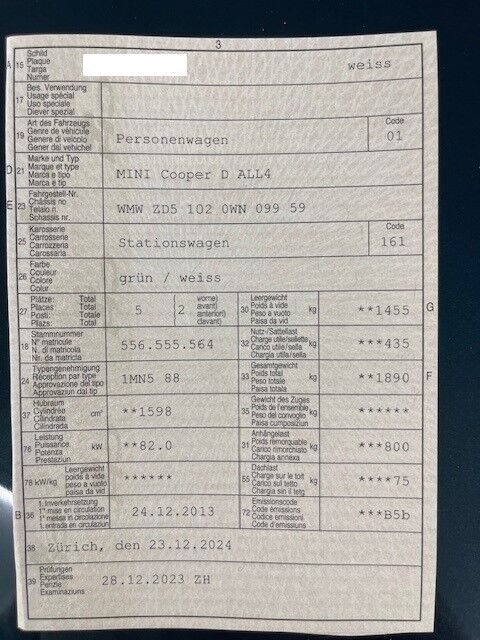 3
A 15 Schild
Plaque
Targa
Numer
weiss
17 Bes. Verwendung
Usage spécial
Uso speciale
Diever spezial
19 Art des Fahrzeugs
Genre de véhicule
Genere di veicolo
Gener dal vehichel
Personenwagen
Code
01
D 21 Marke und Typ
Marque et type
Marca e tipo
Marca e tip
MINI Cooper D ALL4
E 23 Fahrgestell-Nr.
Châssis no
Telaio n.
Schassis nr.
WMW ZD5 102 0WN 099 59
25 Karosserie
Carrosserie
Carrozzeria
Carossaria
Stationswagen
Code
161
26 Farbe
Couleur
Colore
Colur
grün / weiss
27 Plätze: Total
Places Total
Posti: Totale
Plazs: Total
5
2
vorne)
avant)
anteriori)
davant)
30 Leergewicht
Poids à vide
Peso a vuoto
Paisa da vid
kg
**1455
G
18 Stammnummer
N° matricule
N. di matricola
Nr. da matricla
556.555.564
32 Nutz-/Sattellast
Charge utile/sellette
Carico utile/sella
Chargia utila/sella
kg
***435
24 Typengenehmigung
Réception par type
Approvazione del tipo
Approvaziun dal tip
1MN5 88
33 Gesamtgewicht
Poids total
Peso totale
Paisa totala
kg
**1890
F
37 Hubraum
Cylindrée
Cilindrata
Cilindrada
cm³
**1598
35 Gewicht des Zuges
Poids de l'ensemble
Peso del convoglio
Paisa cumposiziun
kg
******
76 Leistung
Puissance
Potenza
Prestaziun
kW
**82.0
31 Anhängelast
Poids remorquable
Carico rimorchiato
Chargia annexa
kg
***800
78 kW/kg
Leergewicht
poids à vide
peso a vuoto
paisa da vid
******
55 Dachlast
Charge sur le toit
Carico sul tetto
Chargia sin il tetg
kg
****75
B 36 1. Inverkehrsetzung
1re mise en circulation
1a messa in circolazione
1. entrada en circulaziun
24.12.2013
72 Emissionscode
Code émissions
Codice emissioni
Code d'emissiuns
***B5b
38 Zürich, den 23.12.2024
39 Prüfungen
Expertises
Perizie
Examinaziuns
28.12.2023 ZH